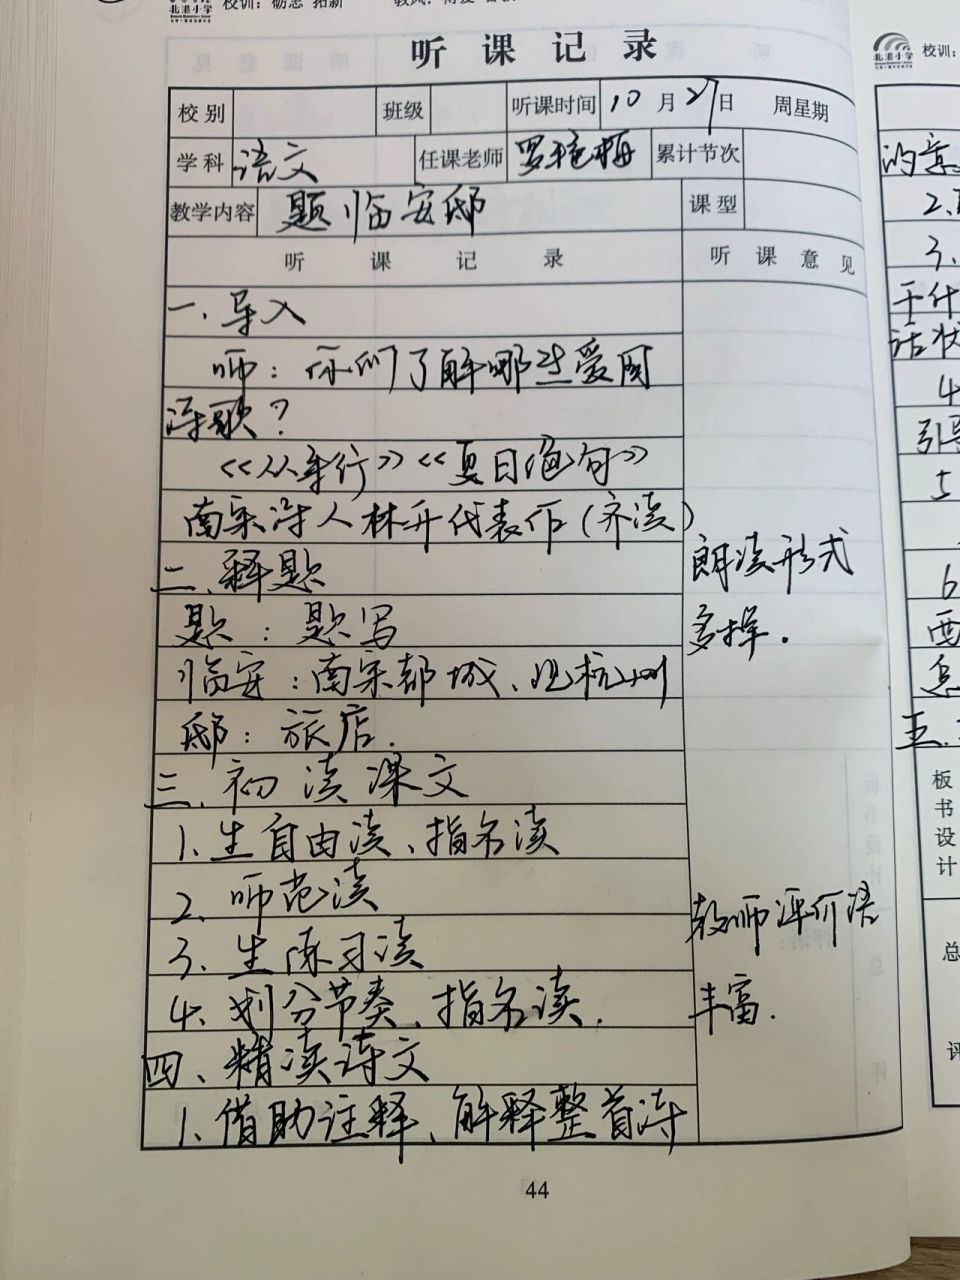 北港小学 校训：砺志 拓新
听课记录
校别 班级 听课时间 10月27日 周星期
学科 语文 任课老师 罗艳梅 累计节次
教学内容 题临安邸 课型
听课记录 听课意见
一、导入
师：你们了解哪些爱国
诗歌？
《从军行》《夏日绝句》
南宋诗人林升代表作（齐读）
二、释题
题：题写
临安：南宋都城、现杭州
邸：旅店.
三、初读课文
1、生自由读、指名读
2、师范读
3、生练习读
4、划分节奏、指名读.
四、精读诗文
1、借助注释、解释整首诗
朗读形式
多样.
教师评价语
丰富.
44
北港小学 校训：
2.
3.
于什
话状
4
引导
5
6
西
五.
板书设计
总
评